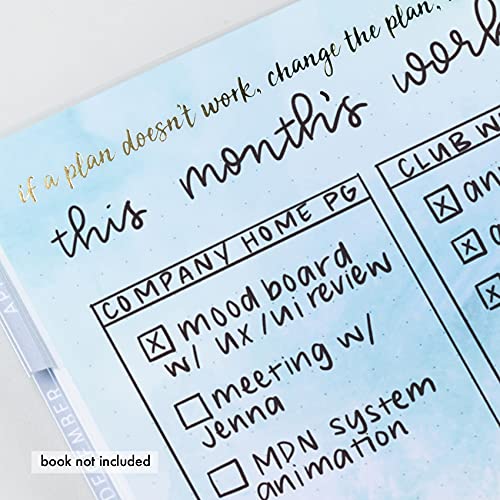 if a plan doesn't work, change the plan,
this month's work
COMPANY HOME PG
☒ mood board
w/ UX / Ui review
☐ meeting w/
Jenna
☐ MDN system
animation
CLUB W
☒ ani
☒
☒
EMBER
book not included